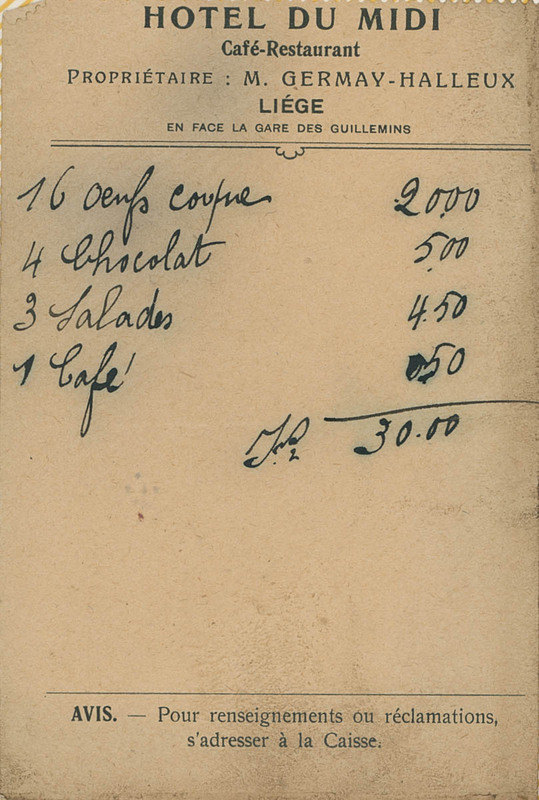 HOTEL DU MIDI
Café-Restaurant
PROPRIÉTAIRE : M. GERMAY-HALLEUX
LIÉGE
EN FACE LA GARE DES GUILLEMINS
16 oeufs coupe 20.00
4 Chocolat 5.00
3 Salades 4.50
1 Café 050
30.00
AVIS. — Pour renseignements ou réclamations,
s'adresser à la Caisse.